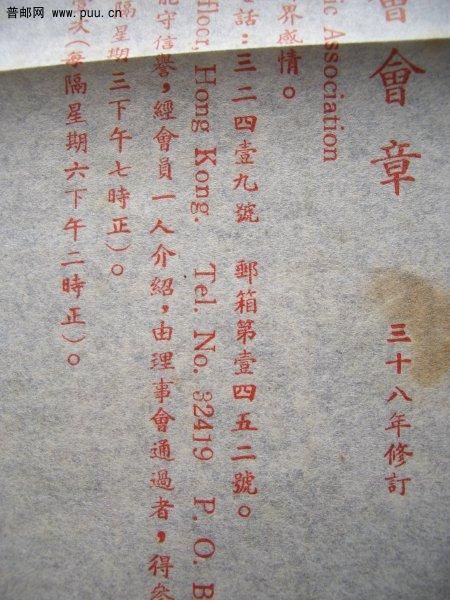 普邮网 www.puu.cn
會會章
三十八年修訂
ic Association
界感情。
話：三二四壹九號 郵箱第壹四五二號。
floor, Hong Kong. Tel. No. 32419 P. O. B
能守信譽，經會員一人介紹，由理事會通過者，得參
隔星期三下午七時正）。
次（每隔星期六下午二時正）。